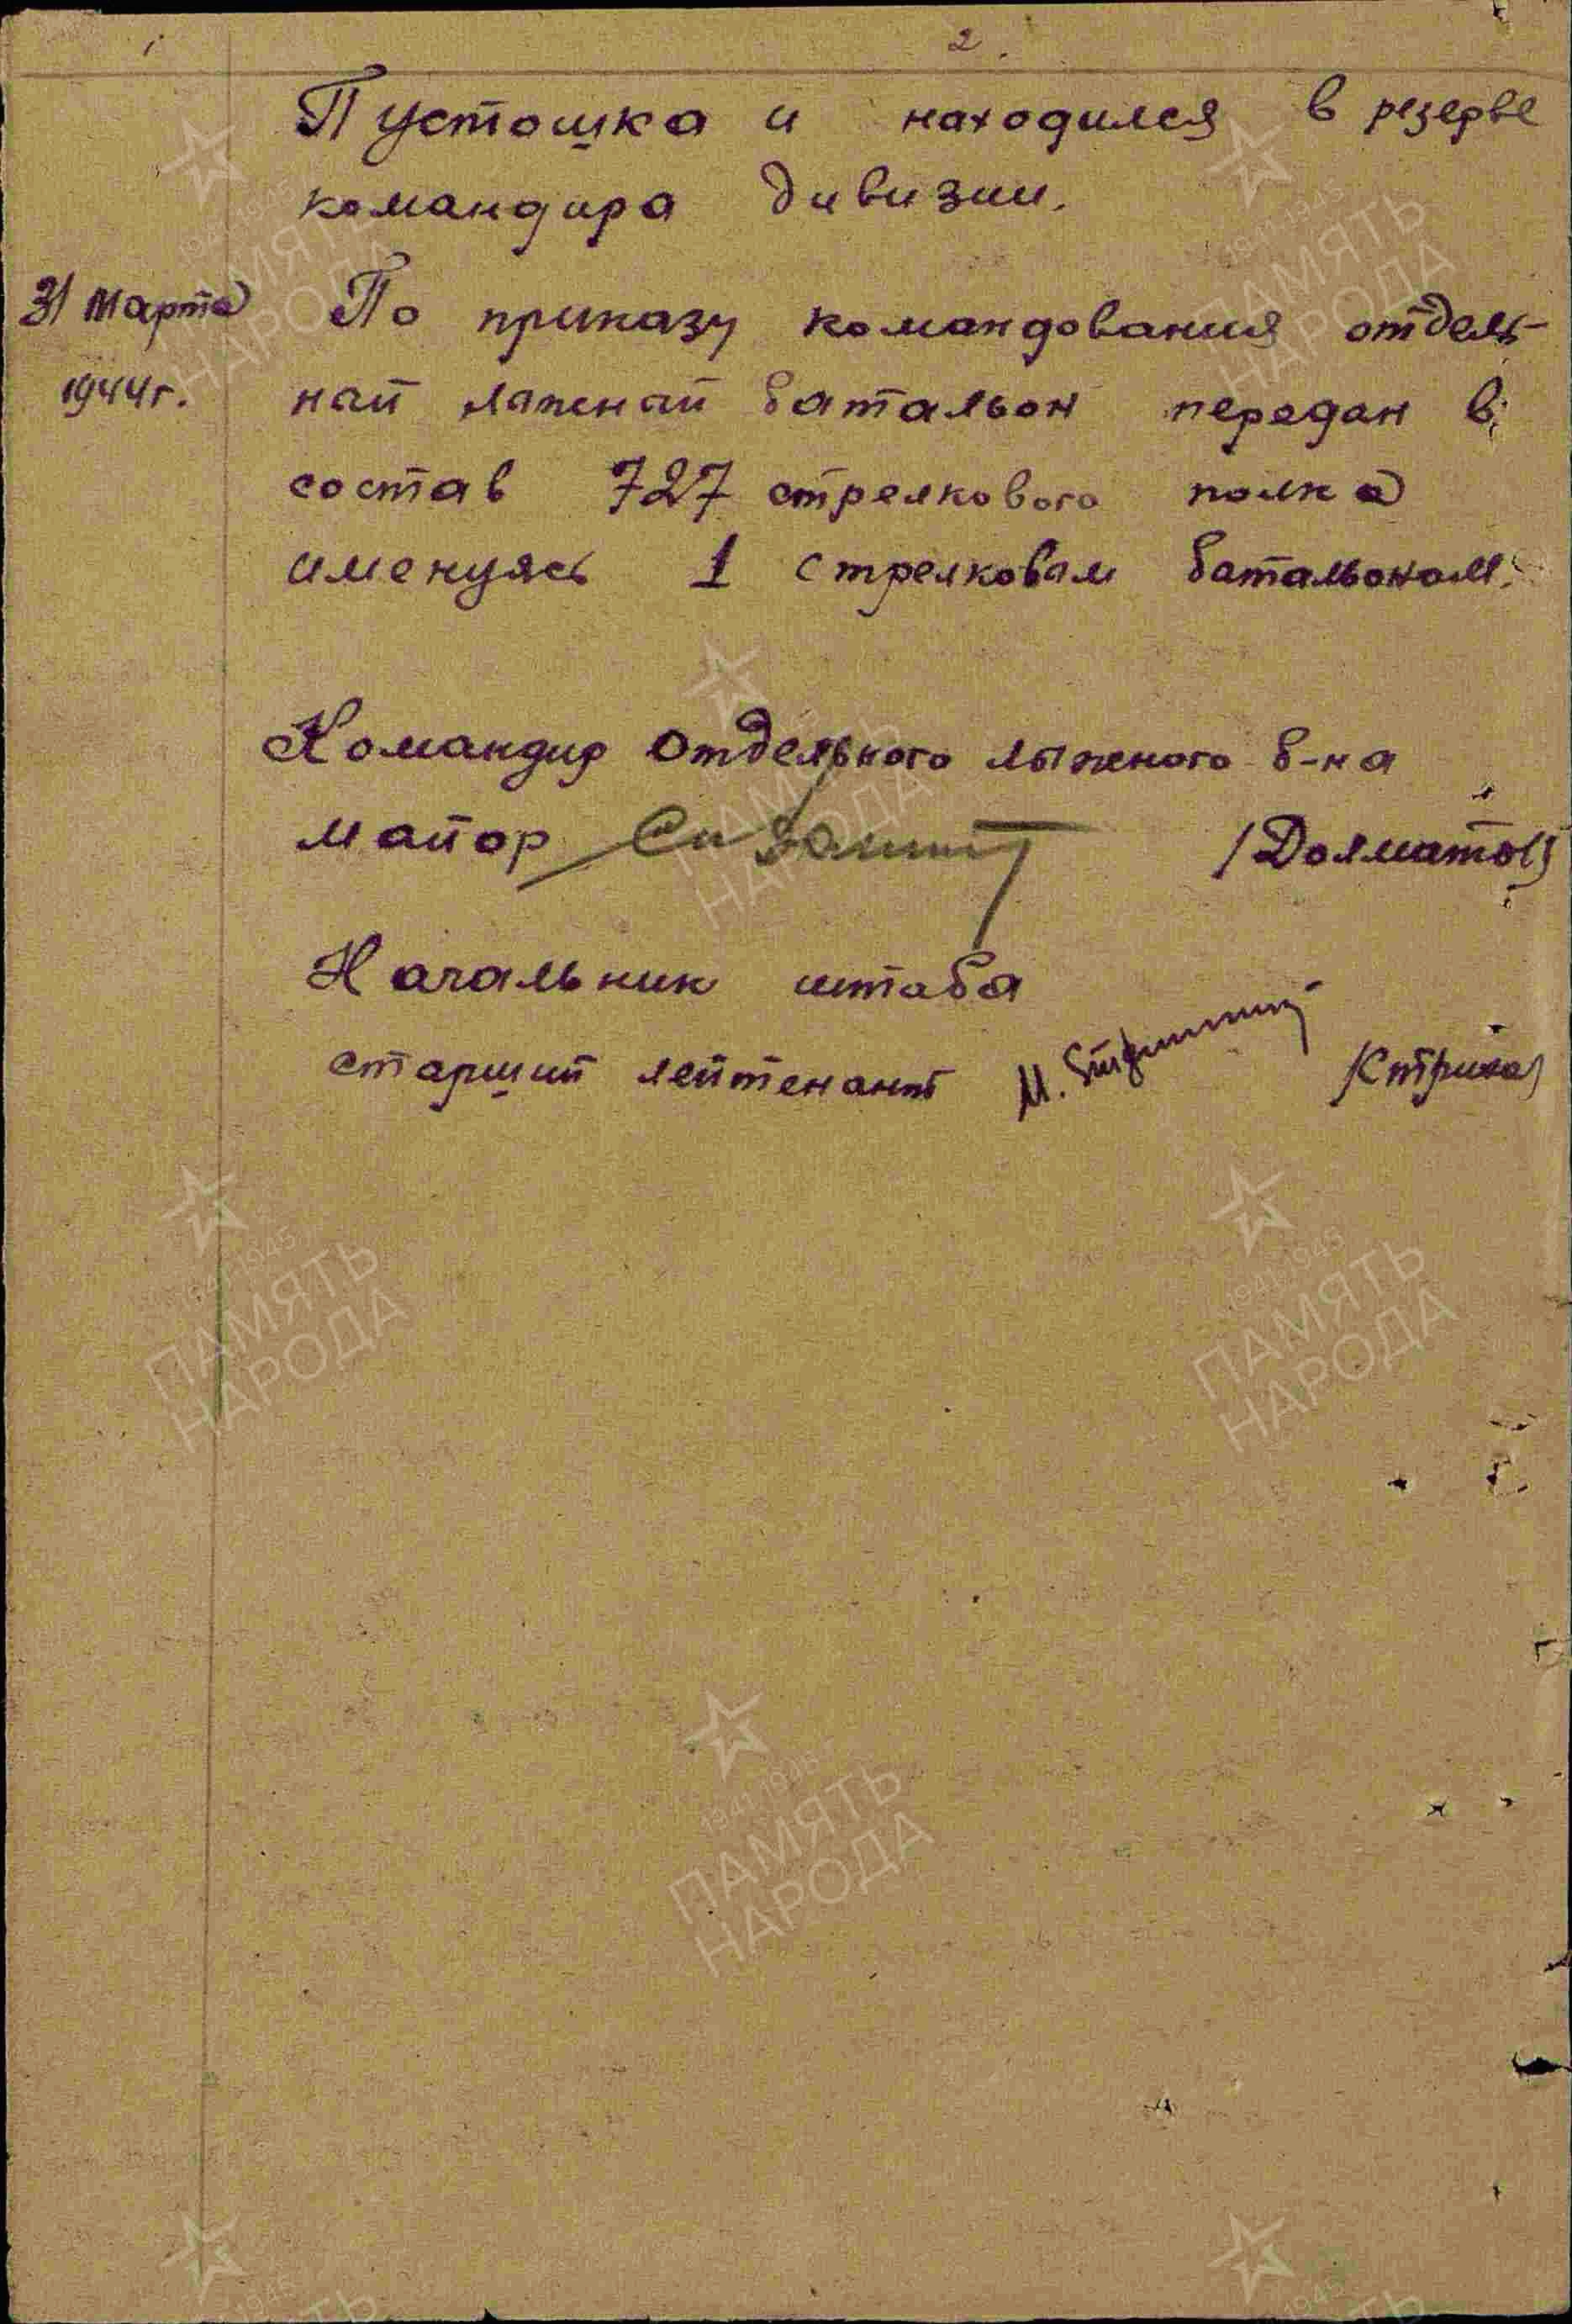 1 2.
Пустошка и находился в резерве
командира дивизии.
31 марта По приказу командования отдель-
1944г. ный лыжный батальон передан в
состав 727 стрелкового полка
именуясь 1 стрелковым батальоном.
Командир отдельного лыжного б-на
майор /Долматов/
Начальник штаба
старший лейтенант
1941-1945
ПАМЯТЬ
НАРОДА